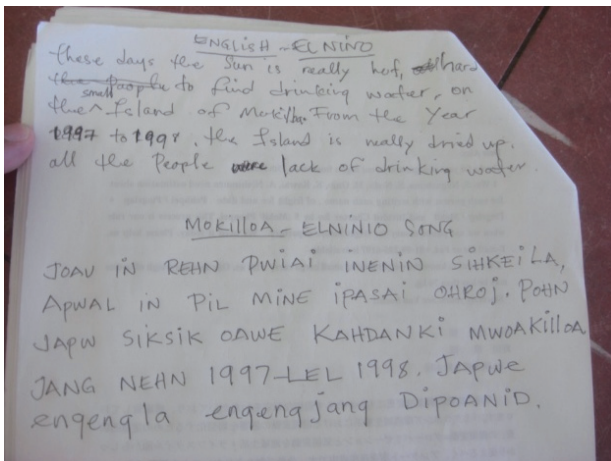 ENGLISH - ELNINO
these days the Sun is really hot, hard
the people to find drinking water, on
the small Island of Mokilloa. From the Year
1997 to 1998, the Island is really dried up.
all the People were lack of drinking water.
MOKILLOA - ELNINIO SONG
JOAU IN REHN PWIAI INENIN SIHKEILA,
APWAL IN PIL MINE IPASAI OHROJ. POHN
JAPW SIKSIK OAWE KAHDANKI MWOAKILLOA
JANG NEHN 1997-LEL 1998. JAPWE
engengla engengjang DIPOANID.